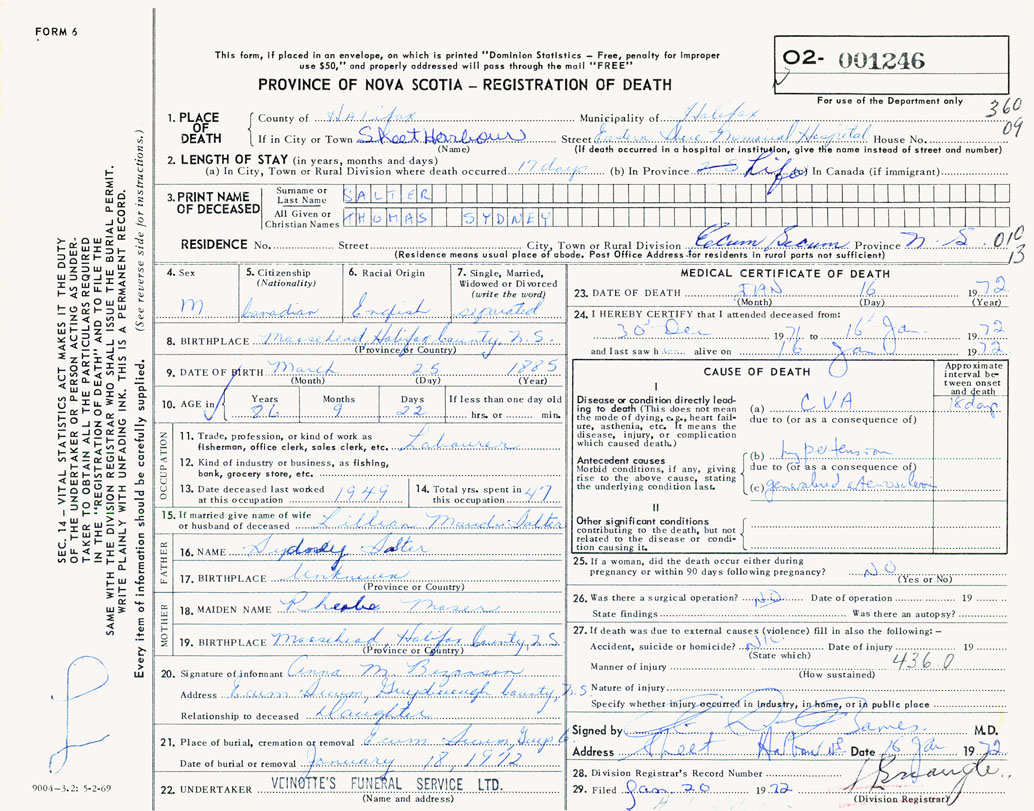 FORM 6
This form, if placed in an envelope, on which is printed "Dominion Statistics – Free, penalty for improper
use $50," and properly addressed will pass through the mail "FREE"
PROVINCE OF NOVA SCOTIA – REGISTRATION OF DEATH
02- 001246
For use of the Department only
360
09
1. PLACE OF DEATH
County of Halifax Municipality of Halifax
If in City or Town Sheet Harbour Street Eastern Shore Memorial Hospital House No.
(Name) (If death occurred in a hospital or institution, give the name instead of street and number)
2. LENGTH OF STAY (in years, months and days)
(a) In City, Town or Rural Division where death occurred 17 days (b) In Province Life (c) In Canada (if immigrant)
3. PRINT NAME OF DECEASED
Surname or Last Name SALTER
All Given or Christian Names THOMAS SYDNEY
RESIDENCE No. Street City, Town or Rural Division Ecum Secum Province N. S. 010
13
(Residence means usual place of abode. Post Office Address for residents in rural parts not sufficient)
4. Sex M
5. Citizenship (Nationality) Canadian
6. Racial Origin English
7. Single, Married, Widowed or Divorced (write the word) separated
8. BIRTHPLACE Moosehead, Halifax County, N.S.
(Province or Country)
9. DATE OF BIRTH March 25 1885
(Month) (Day) (Year)
10. AGE in Years Months Days If less than one day old
86 9 22 hrs. or min.
OCCUPATION
11. Trade, profession, or kind of work as fisherman, office clerk, sales clerk, etc. Labourer
12. Kind of industry or business, as fishing, bank, grocery store, etc.
13. Date deceased last worked at this occupation 1949
14. Total yrs. spent in this occupation 47
15. If married give name of wife or husband of deceased Lillian Maude Salter
FATHER
16. NAME Sydney Salter
17. BIRTHPLACE Unknown
(Province or Country)
MOTHER
18. MAIDEN NAME Pheobe Moser
19. BIRTHPLACE Moosehead, Halifax County, N.S.
(Province or Country)
20. Signature of informant Anna M. Bezanson
Address Ecum Secum, Guysborough County, N.S.
Relationship to deceased Daughter
21. Place of burial, cremation or removal Ecum Secum, Guys Co.
Date of burial or removal January 18, 1972
22. UNDERTAKER VEINOTTE'S FUNERAL SERVICE LTD.
(Name and address)
MEDICAL CERTIFICATE OF DEATH
23. DATE OF DEATH JAN 16 1972
(Month) (Day) (Year)
24. I HEREBY CERTIFY that I attended deceased from:
30 Dec 1971 to 16 Jan. 1972
and last saw h alive on 16 Jan 1972
CAUSE OF DEATH
Approximate interval between onset and death
I
Disease or condition directly leading to death (This does not mean the mode of dying, e.g., heart failure, asthenia, etc. It means the disease, injury, or complication which caused death.)
(a) CVA 18 days
due to (or as a consequence of)
Antecedent causes
Morbid conditions, if any, giving rise to the above cause, stating the underlying condition last.
(b) hypertension
due to (or as a consequence of)
(c) generalised atherosclerosis
II
Other significant conditions
contributing to the death, but not related to the disease or condition causing it.
25. If a woman, did the death occur either during pregnancy or within 90 days following pregnancy? NO
(Yes or No)
26. Was there a surgical operation? NO Date of operation 19
State findings Was there an autopsy?
27. If death was due to external causes (violence) fill in also the following: –
Accident, suicide or homicide? Date of injury 19
(State which)
4360
Manner of injury
(How sustained)
Nature of injury
Specify whether injury occurred in industry, in home, or in public place
Signed by James M.D.
Address Sheet Harbour NS. Date 16 Jan 1972
28. Division Registrar's Record Number
29. Filed Jan. 20 1972
(Division Registrar)
SEC. 14 – VITAL STATISTICS ACT MAKES IT THE DUTY
OF THE UNDERTAKER OR PERSON ACTING AS UNDERTAKER
TO OBTAIN ALL THE PARTICULARS REQUIRED
IN THE "REGISTRATION OF DEATH" AND TO FILE THE
SAME WITH THE DIVISION REGISTRAR WHO SHALL ISSUE THE BURIAL PERMIT.
WRITE PLAINLY WITH UNFADING INK. THIS IS A PERMANENT RECORD.
Every item of information should be carefully supplied. (See reverse side for instructions.)
9004-3.2: 5-2-69